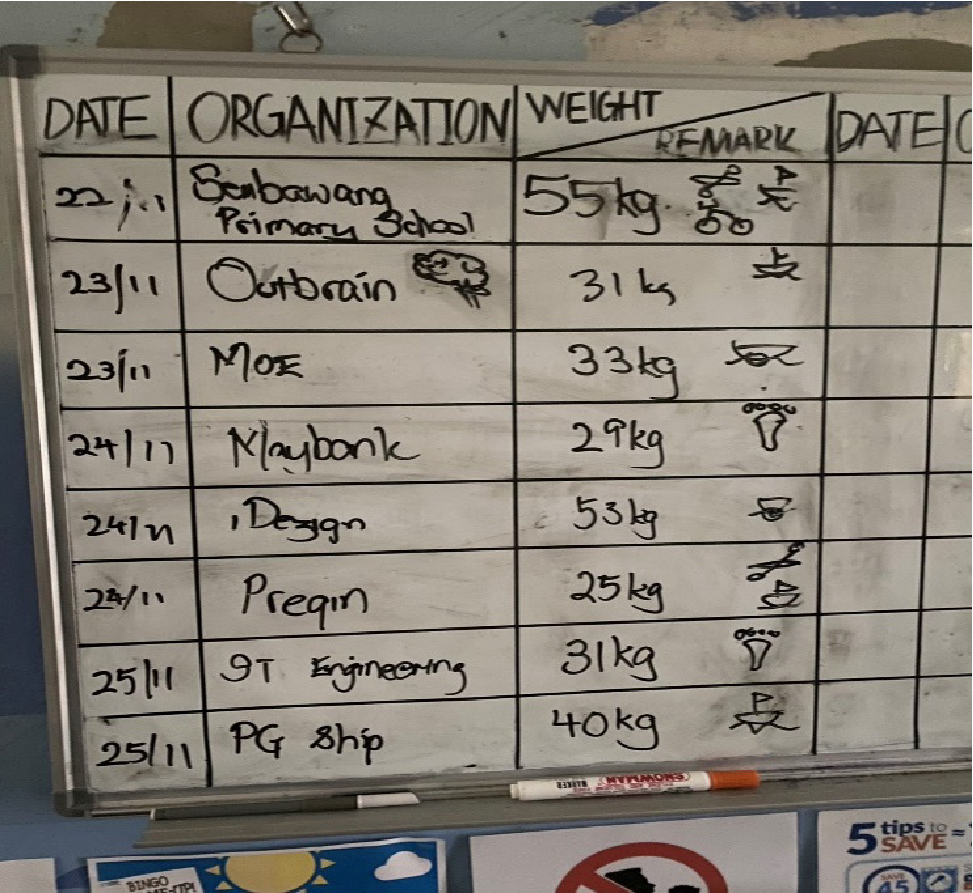 DATE ORGANIZATION WEIGHT REMARK DATE
22/11 Sembawang Primary School 55kg.
23/11 Outbrain 31kg
23/11 MOE 33kg
24/11 Maybank 29kg
24/11 iDesign 53kg
24/11 Preqin 25kg
25/11 ST Engineering 31kg
25/11 PG Ship 40kg
SNOWMAN
MARKER
5 tips to SAVE
BINGO